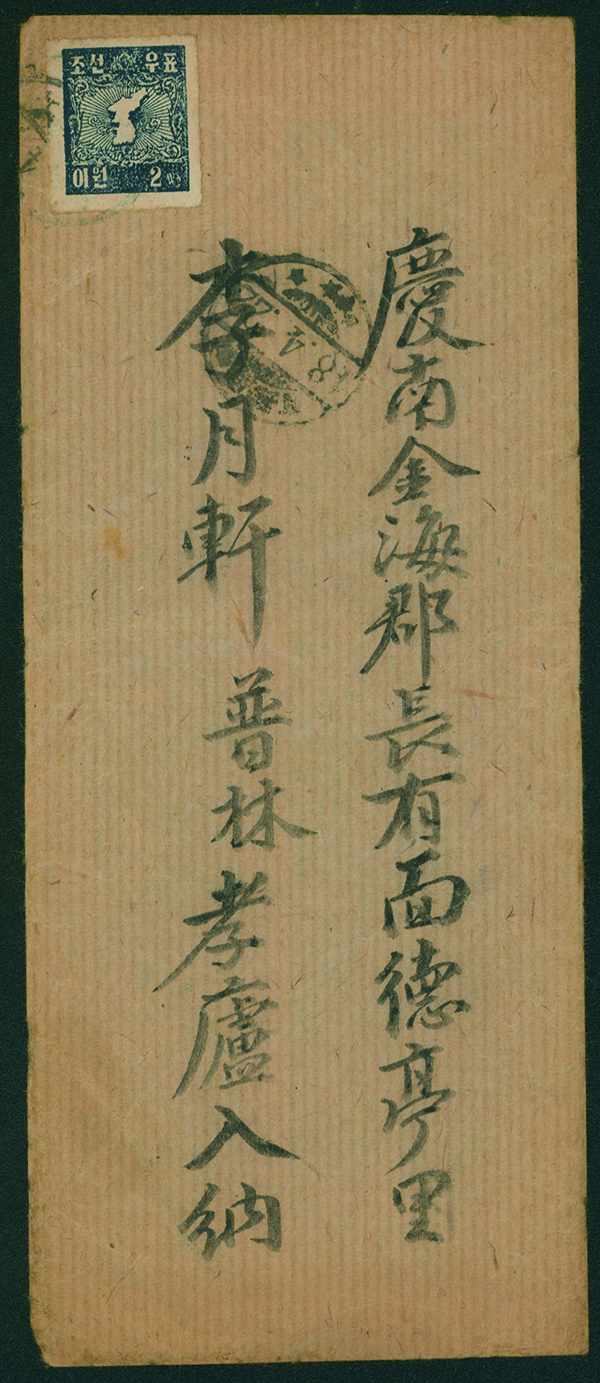 조선 우표
이원 2
慶南金海郡長有面德亭里
李月軒 普林孝廬入納